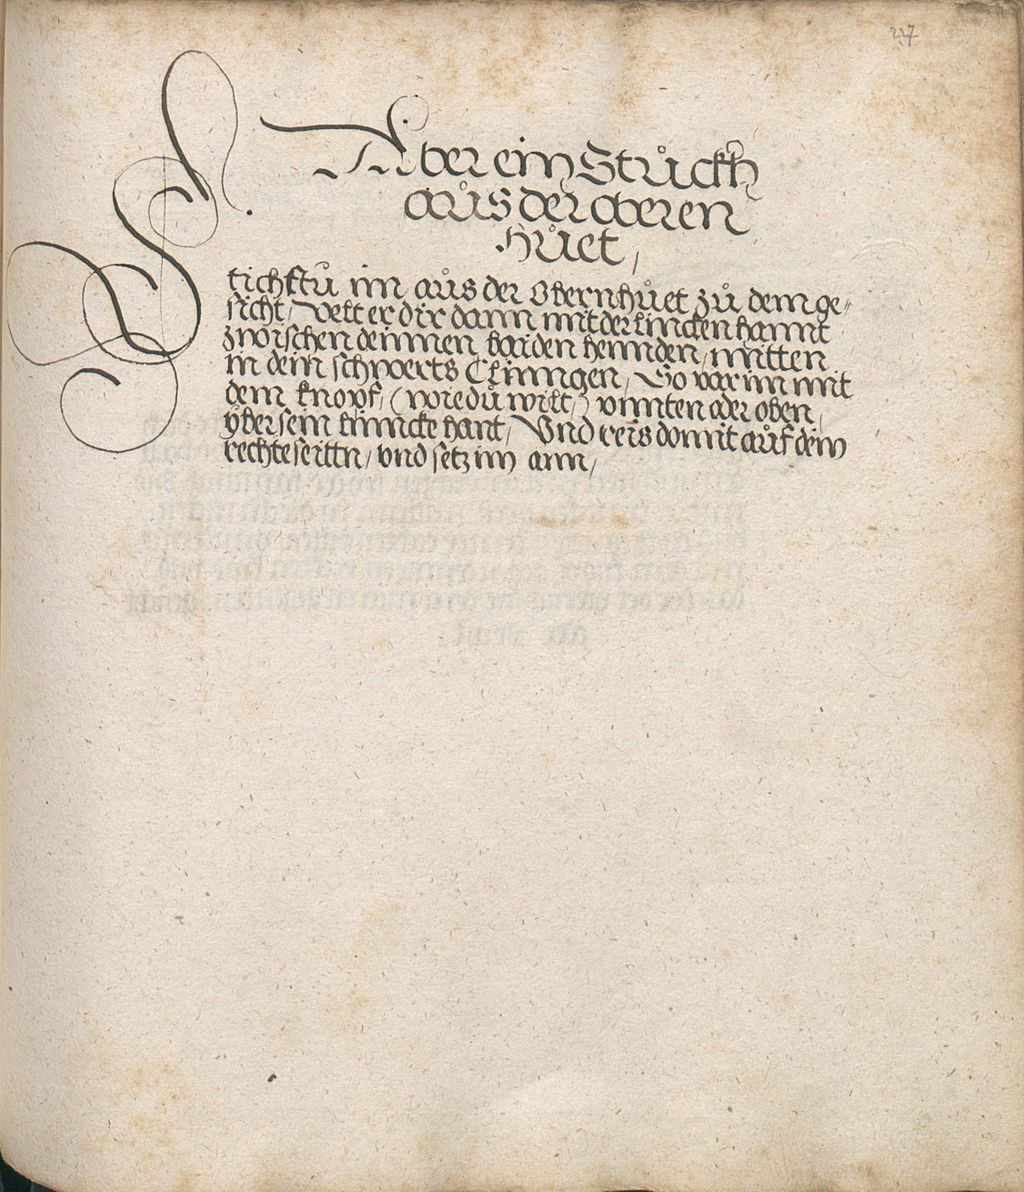 227
Aber ein Stůckh
aůs der oberen
Hůet,
Stichstu im aůs der Obernhůet zů dem ge-
sicht, Velt er dir dann mit der lincken hannt
zwischen deinnen baiden hennden, mitten
in dem schwerts Clinngen, So var im mit
dem knopf, (wie dů wilt,) vnnten oder oben,
yber sein linncke hant, Vnd reis domit aůf dein
rechte seittn, vnd setz im ann,